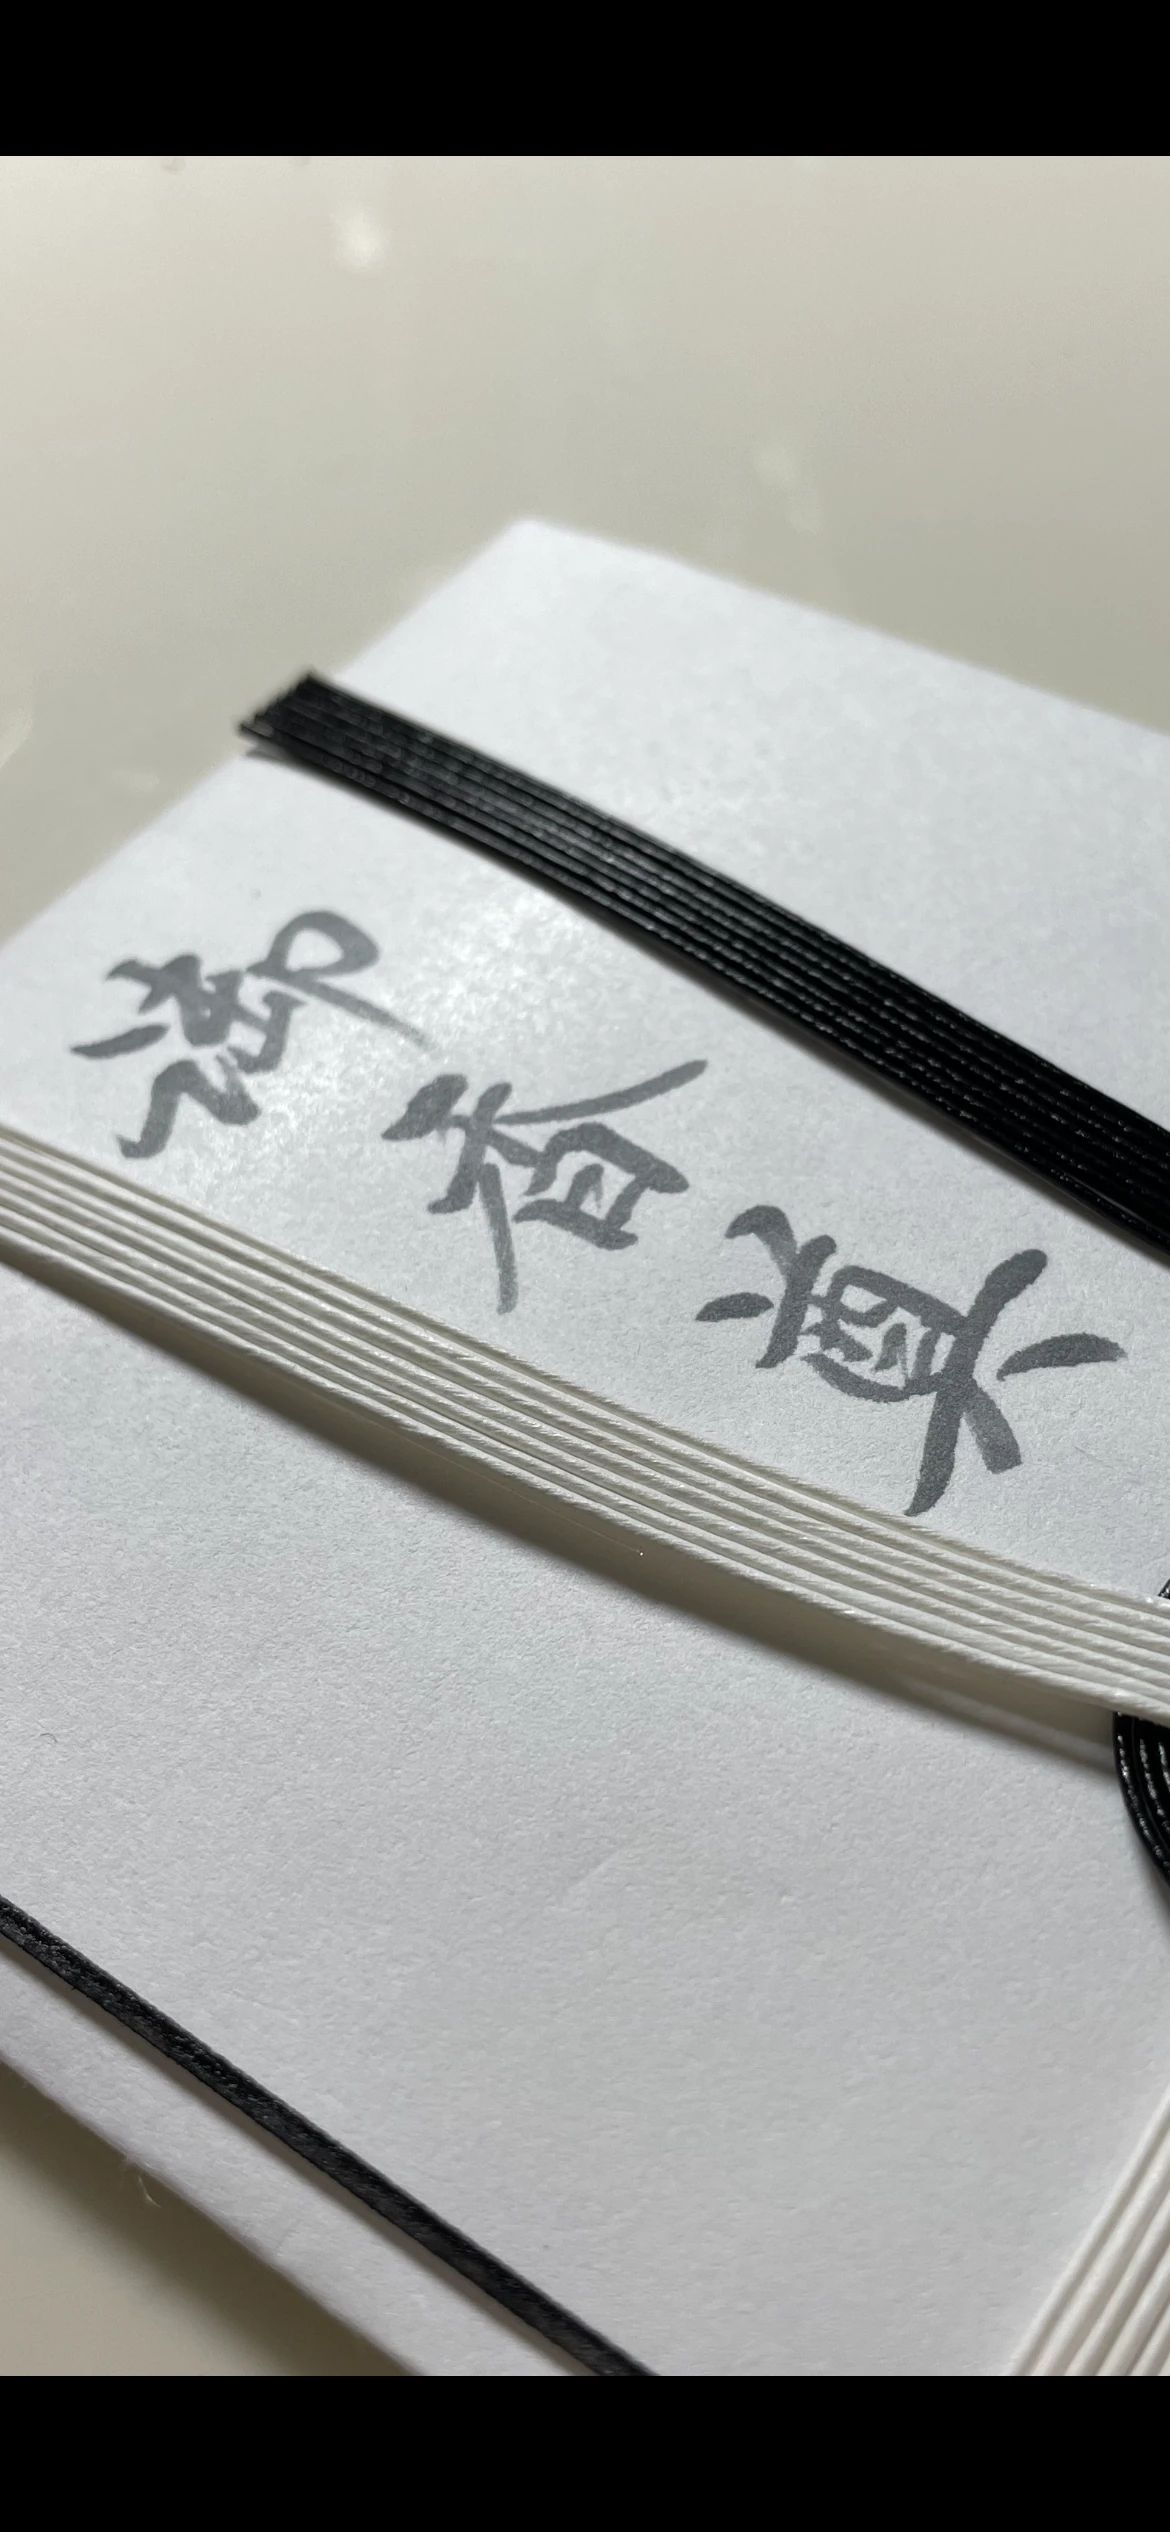 御香奠